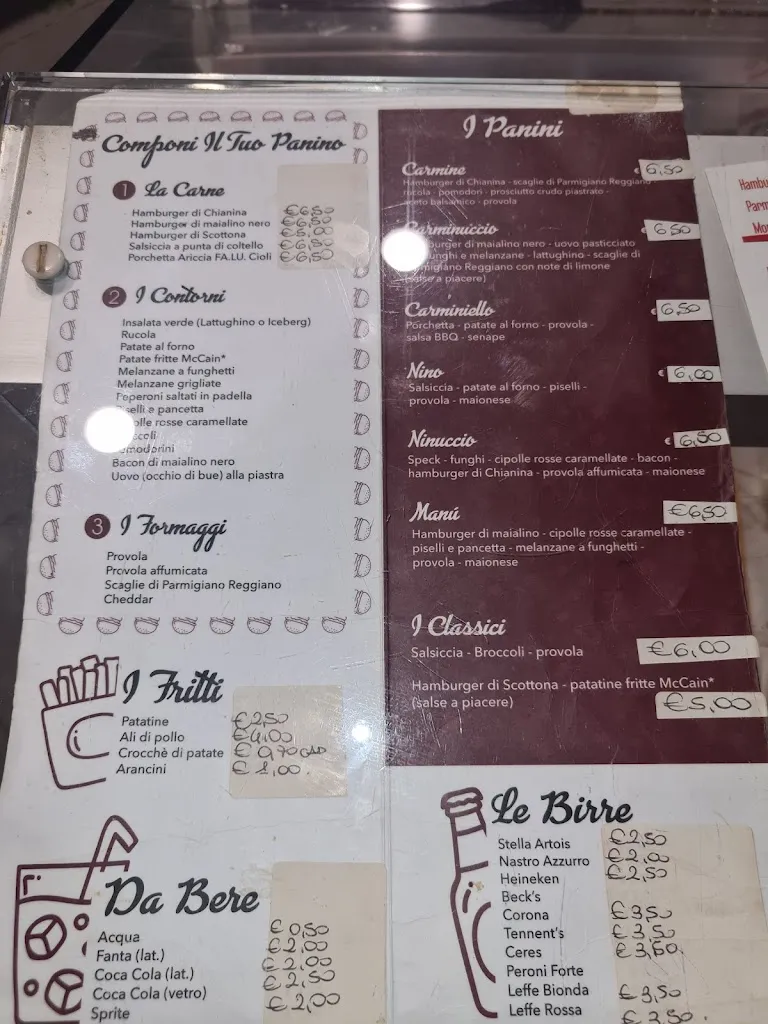 Componi Il Tuo Panino
1 La Carne
Hamburger di Chianina €6,50
Hamburger di maialino nero €6,50
Hamburger di Scottona €5,00
Salsiccia a punta di coltello €6,50
Porchetta Ariccia FA.LU. Cioli €6,50
2 I Contorni
Insalata verde (Lattughino o Iceberg)
Rucola
Patate al forno
Patate fritte McCain*
Melanzane a funghetti
Melanzane grigliate
Peperoni saltati in padella
selli e pancetta
polle rosse caramellate
ccoli
modorini
Bacon di maialino nero
Uovo (occhio di bue) alla piastra
3 I Formaggi
Provola
Provola affumicata
Scaglie di Parmigiano Reggiano
Cheddar
I Fritti
Patatine €2,50
Ali di pollo €4,00
Crocchè di patate €0,70 CAD
Arancini
Da Bere
Acqua €0,50
Fanta (lat.) €2,00
Coca Cola (lat.) €2,00
Coca Cola (vetro) €2,50
Sprite €2,00
I Panini
Carmine € 6,50
Hamburger di Chianina - scaglie di Parmigiano Reggiano
rucola - pomodori - prosciutto crudo piastrato -
aceto balsamico - provola
Carminuccio 6,50
burger di maialino nero - uovo pasticciato
funghi e melanzane - lattughino - scaglie di
migiano Reggiano con note di limone
(salse a piacere)
Carminiello € 6,50
Porchetta - patate al forno - provola -
salsa BBQ - senape
Nino € 6,00
Salsiccia - patate al forno - piselli -
provola - maionese
Ninuccio € 6,50
Speck - funghi - cipolle rosse caramellate - bacon -
hamburger di Chianina - provola affumicata - maionese
Manú €6,50
Hamburger di maialino - cipolle rosse caramellate -
piselli e pancetta - melanzane a funghetti -
provola - maionese
I Classici
Salsiccia - Broccoli - provola €6,00
Hamburger di Scottona - patatine fritte McCain*
(salse a piacere) €5,00
Le Birre
Stella Artois €2,50
Nastro Azzurro €2,00
Heineken €2,50
Beck's
Corona €3,50
Tennent's €3,50
Ceres €3,50
Peroni Forte
Leffe Bionda €3,50
Leffe Rossa €3,50
Hambu
Parm
Mo